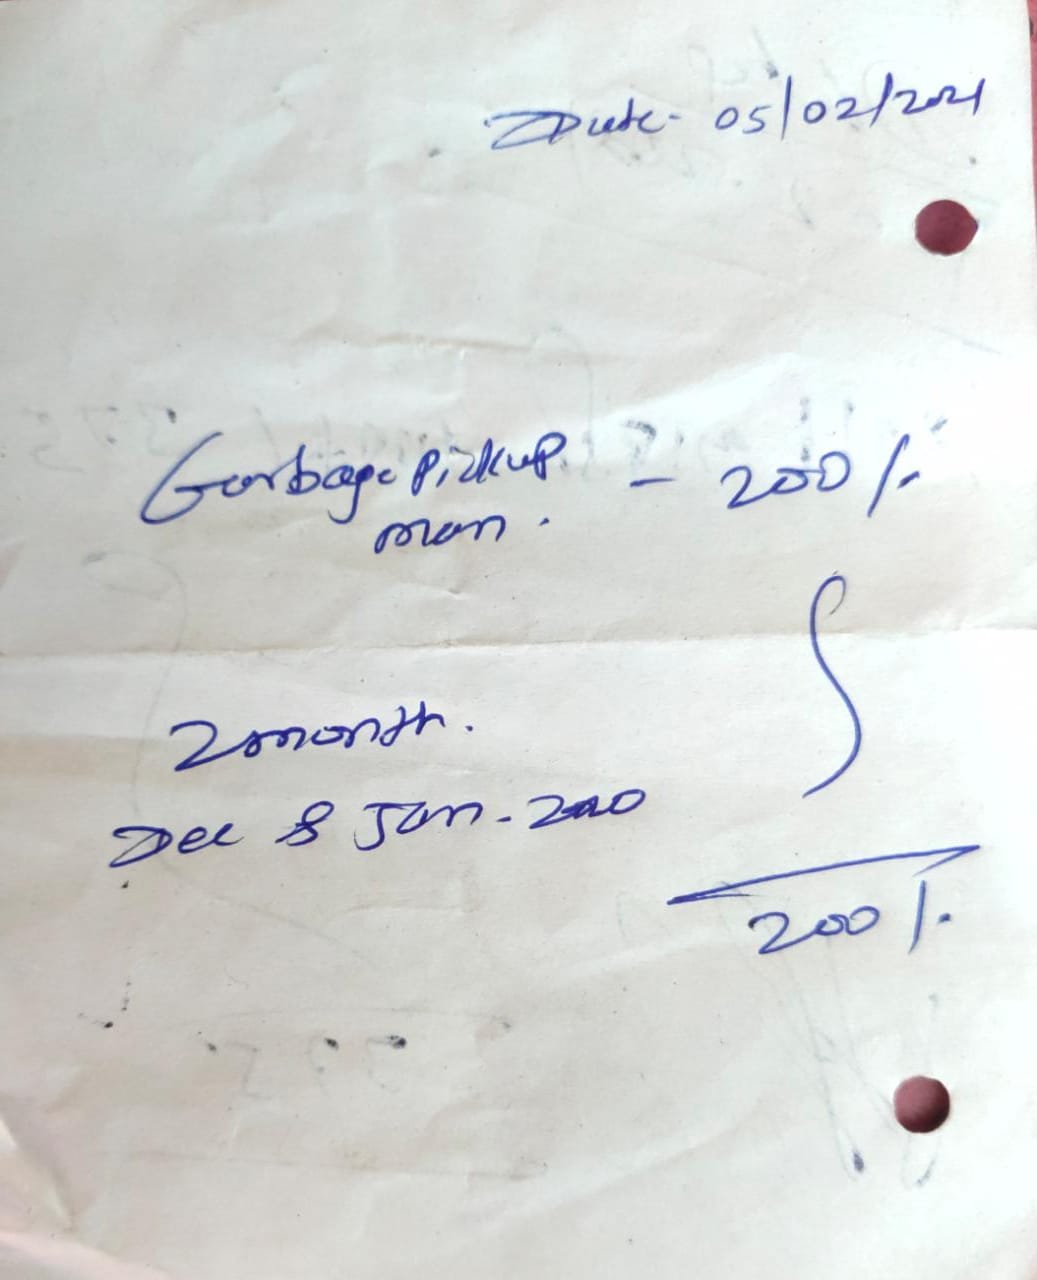 Date- 05/02/2021
Garbage Pickup - 200/.
man.
2 month.
Dec & Jan-2020
200/.